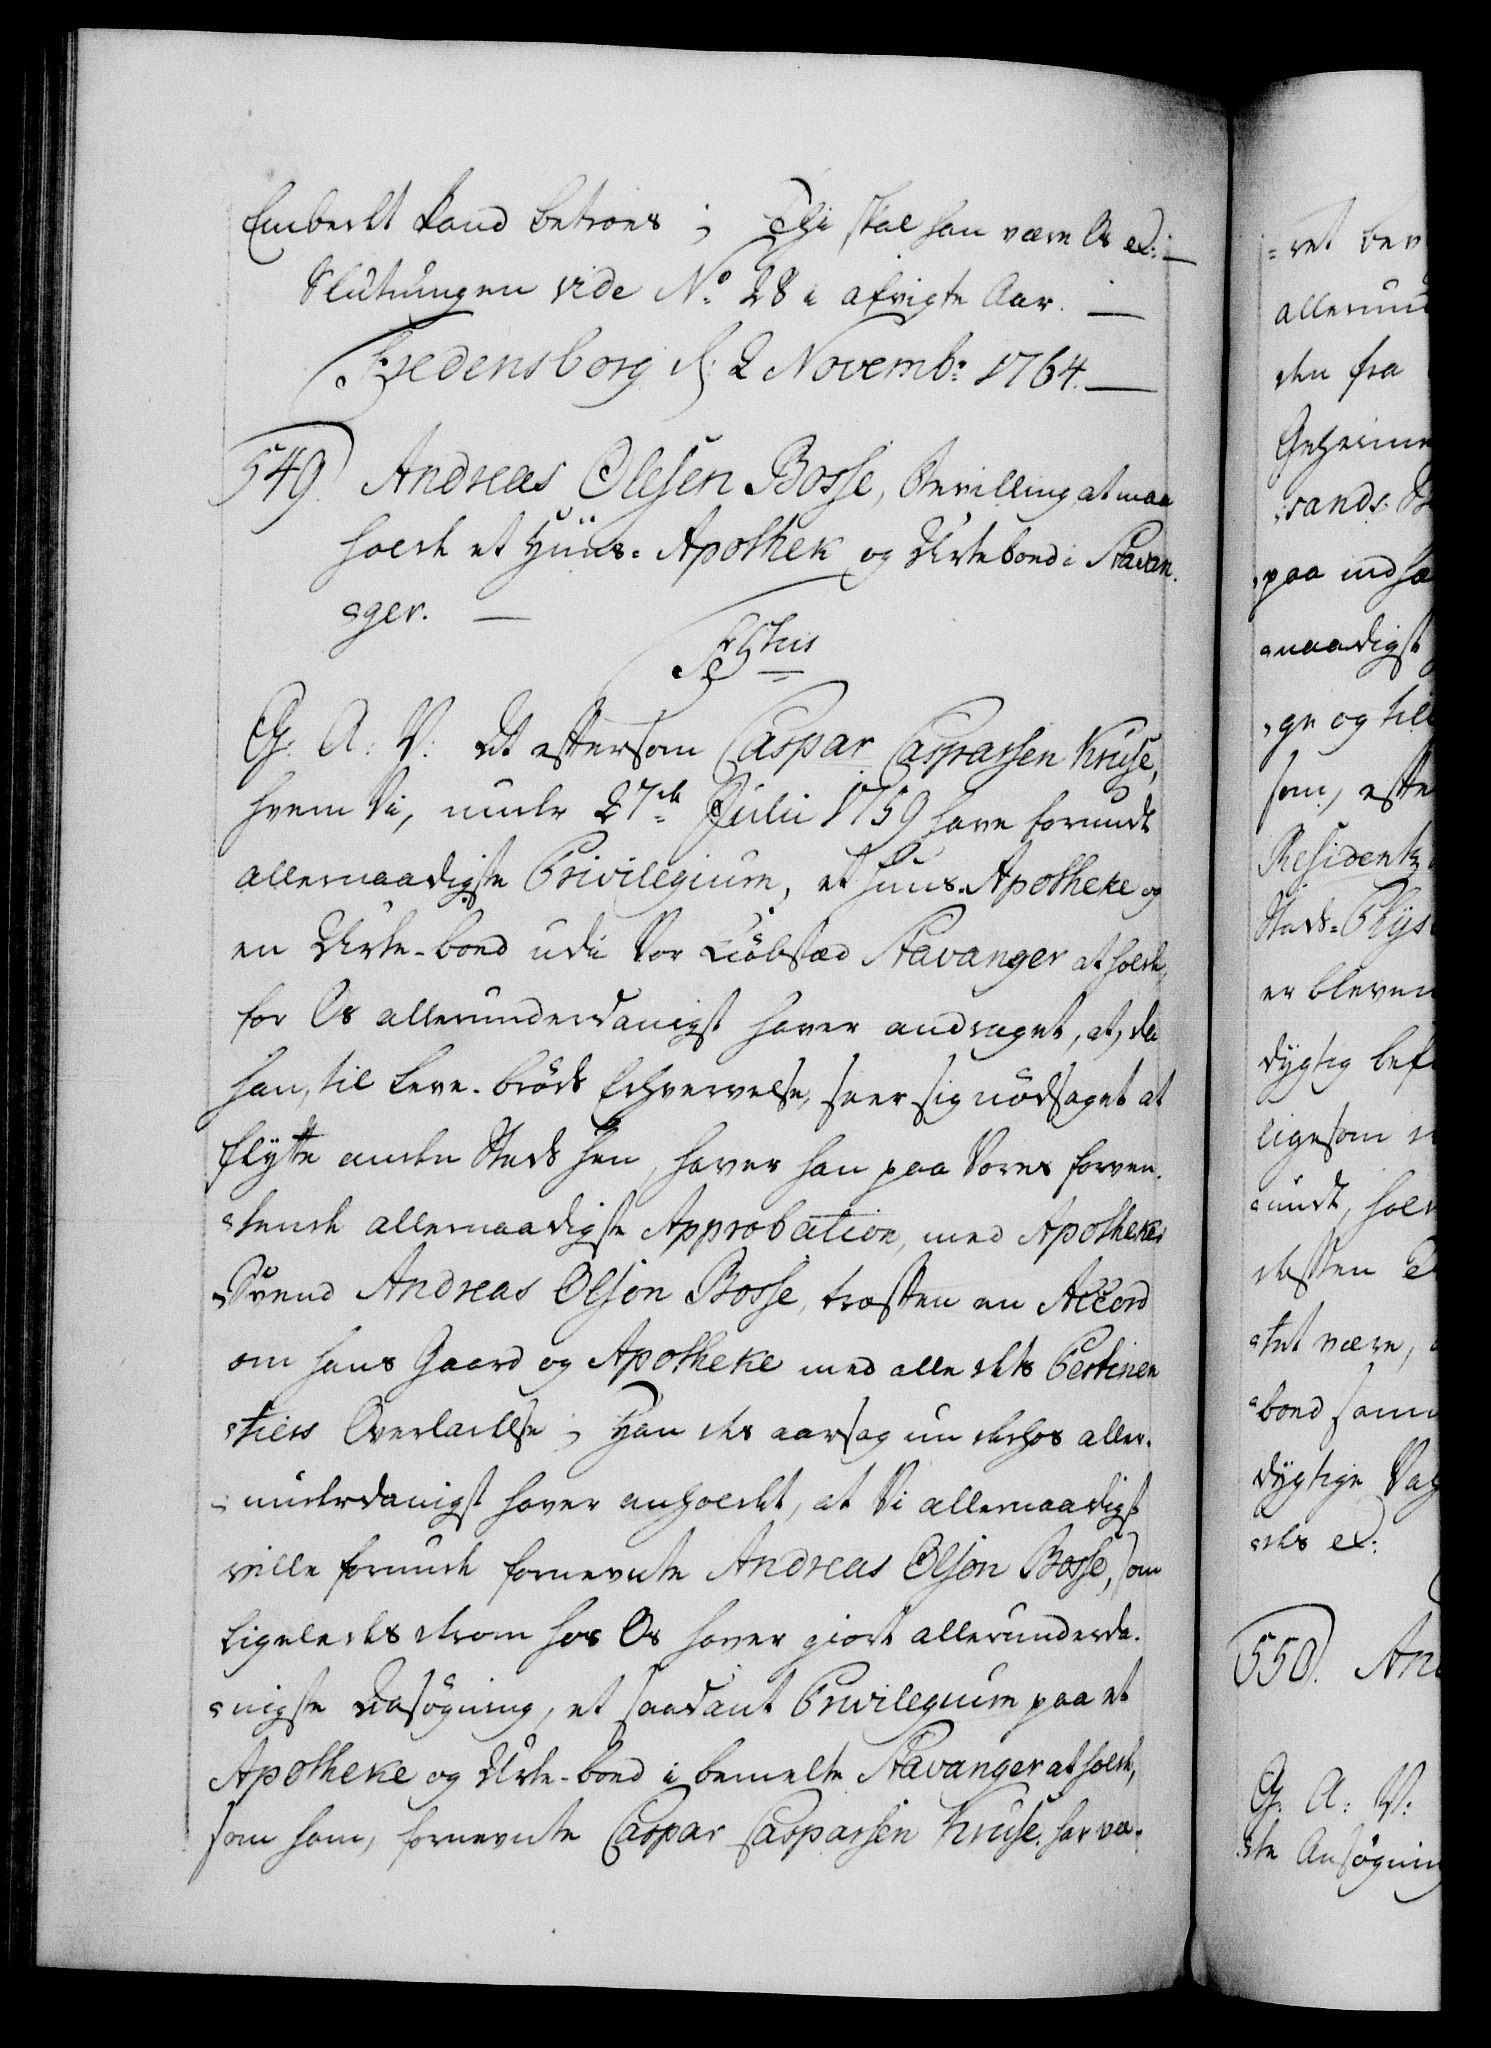 Embedet kand betroes; Thi skal han være Os &:
Slutningen vide No. 28 i afvigte Aar.
Fredensborg d: 2 Novembr: 1764.
549. Andreas Olesen Bosse, Bevilling, at maa
holde et Huus-Apothek og Urteboed i Stavan-
ger.
G: A: V: At eftersom Caspar Casparsen Kruse,
hvem Vi, under 27de Julii 1759 have forundt
allernaadigste Privilegium, et Huus-Apotheke og
en Urte-boed udi Vor Kiöbstæd Stavanger at holde,
for Os allerunderdanigst haver andraget, at, da
han, til Leve-bröds Erhvervelse, seer sig nödsaget at
flytte anden Steds hen, haver han paa Vores forven-
tende allernaadigste Approbation, med Apotheker
Svend Andreas Olson Bosse, træffen en Accord
om hans Gaard og Apotheke med alle dets Pertinen
tiers Overladelse; Han des aarsag nu derhos aller-
underdanigst haver anholdet, at Vi allernaadigst
ville forunde fornevnte Andreas Olson Bosse, som
ligeledes derom hos Os haver giort allerunderda-
nigste Ansögning, et saadant Privilegium paa et
Apotheke og Urte-boed i bemelte Stavanger at holde,
som ham, fornevnte Caspar Casparsen Kruse, har væ-
ret bev
allerund
den fra
Geheime
sands: 
paa indha
naadigst
ge og till
som, efte
Residentz
Stads-Phys
er bleven
dygtig bef
ligesom
undt, hold
desten
stet være,
boed sam
dygtige Va
des &:
550. An
G: A: V:
ste Ansögnin